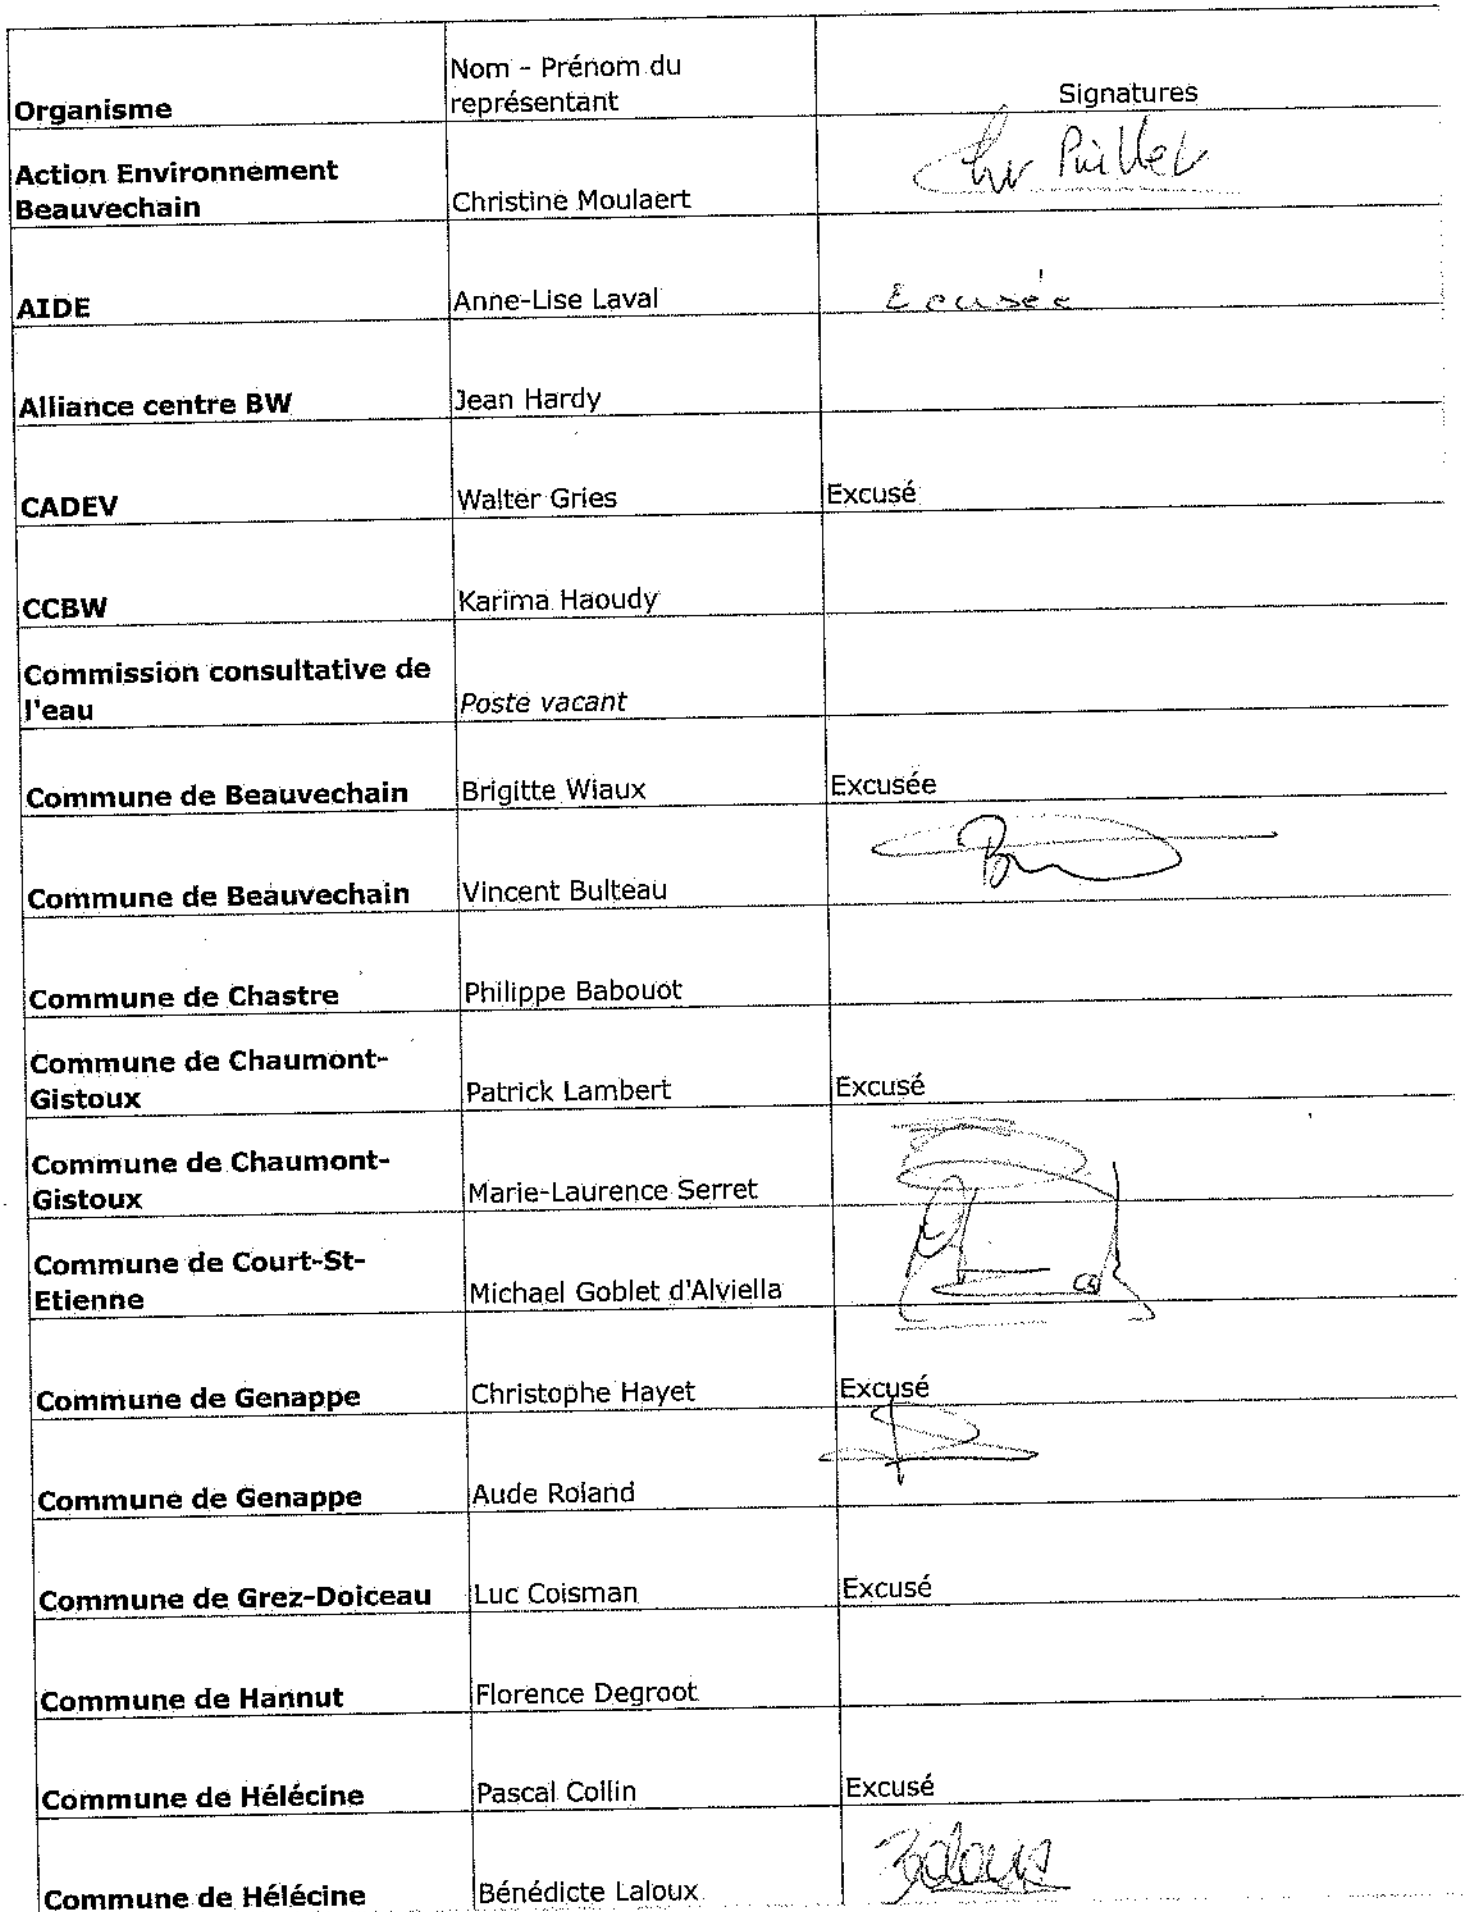 Nom - Prénom du
représentant
Organisme
Signatures
Action Environnement
Beauvechain
Christine Moulaert
AIDE
Anne-Lise Laval
Ecusée
Alliance centre BW
Jean Hardy
CADEV
Walter Gries
Excusé
CCBW
Karima Haoudy
Commission consultative de
l'eau
Poste vacant
Commune de Beauvechain
Brigitte Wiaux
Excusée
Commune de Beauvechain
Vincent Bulteau
Commune de Chastre
Philippe Babouot
Commune de Chaumont-
Gistoux
Patrick Lambert
Excusé
Commune de Chaumont-
Gistoux
Marie-Laurence Serret
Commune de Court-St-
Etienne
Michael Goblet d'Alviella
Commune de Genappe
Christophe Hayet
Excusé
Commune de Genappe
Aude Roland
Commune de Grez-Doiceau
Luc Coisman
Excusé
Commune de Hannut
Florence Degroot
Commune de Hélécine
Pascal Collin
Excusé
Commune de Hélécine
Bénédicte Laloux